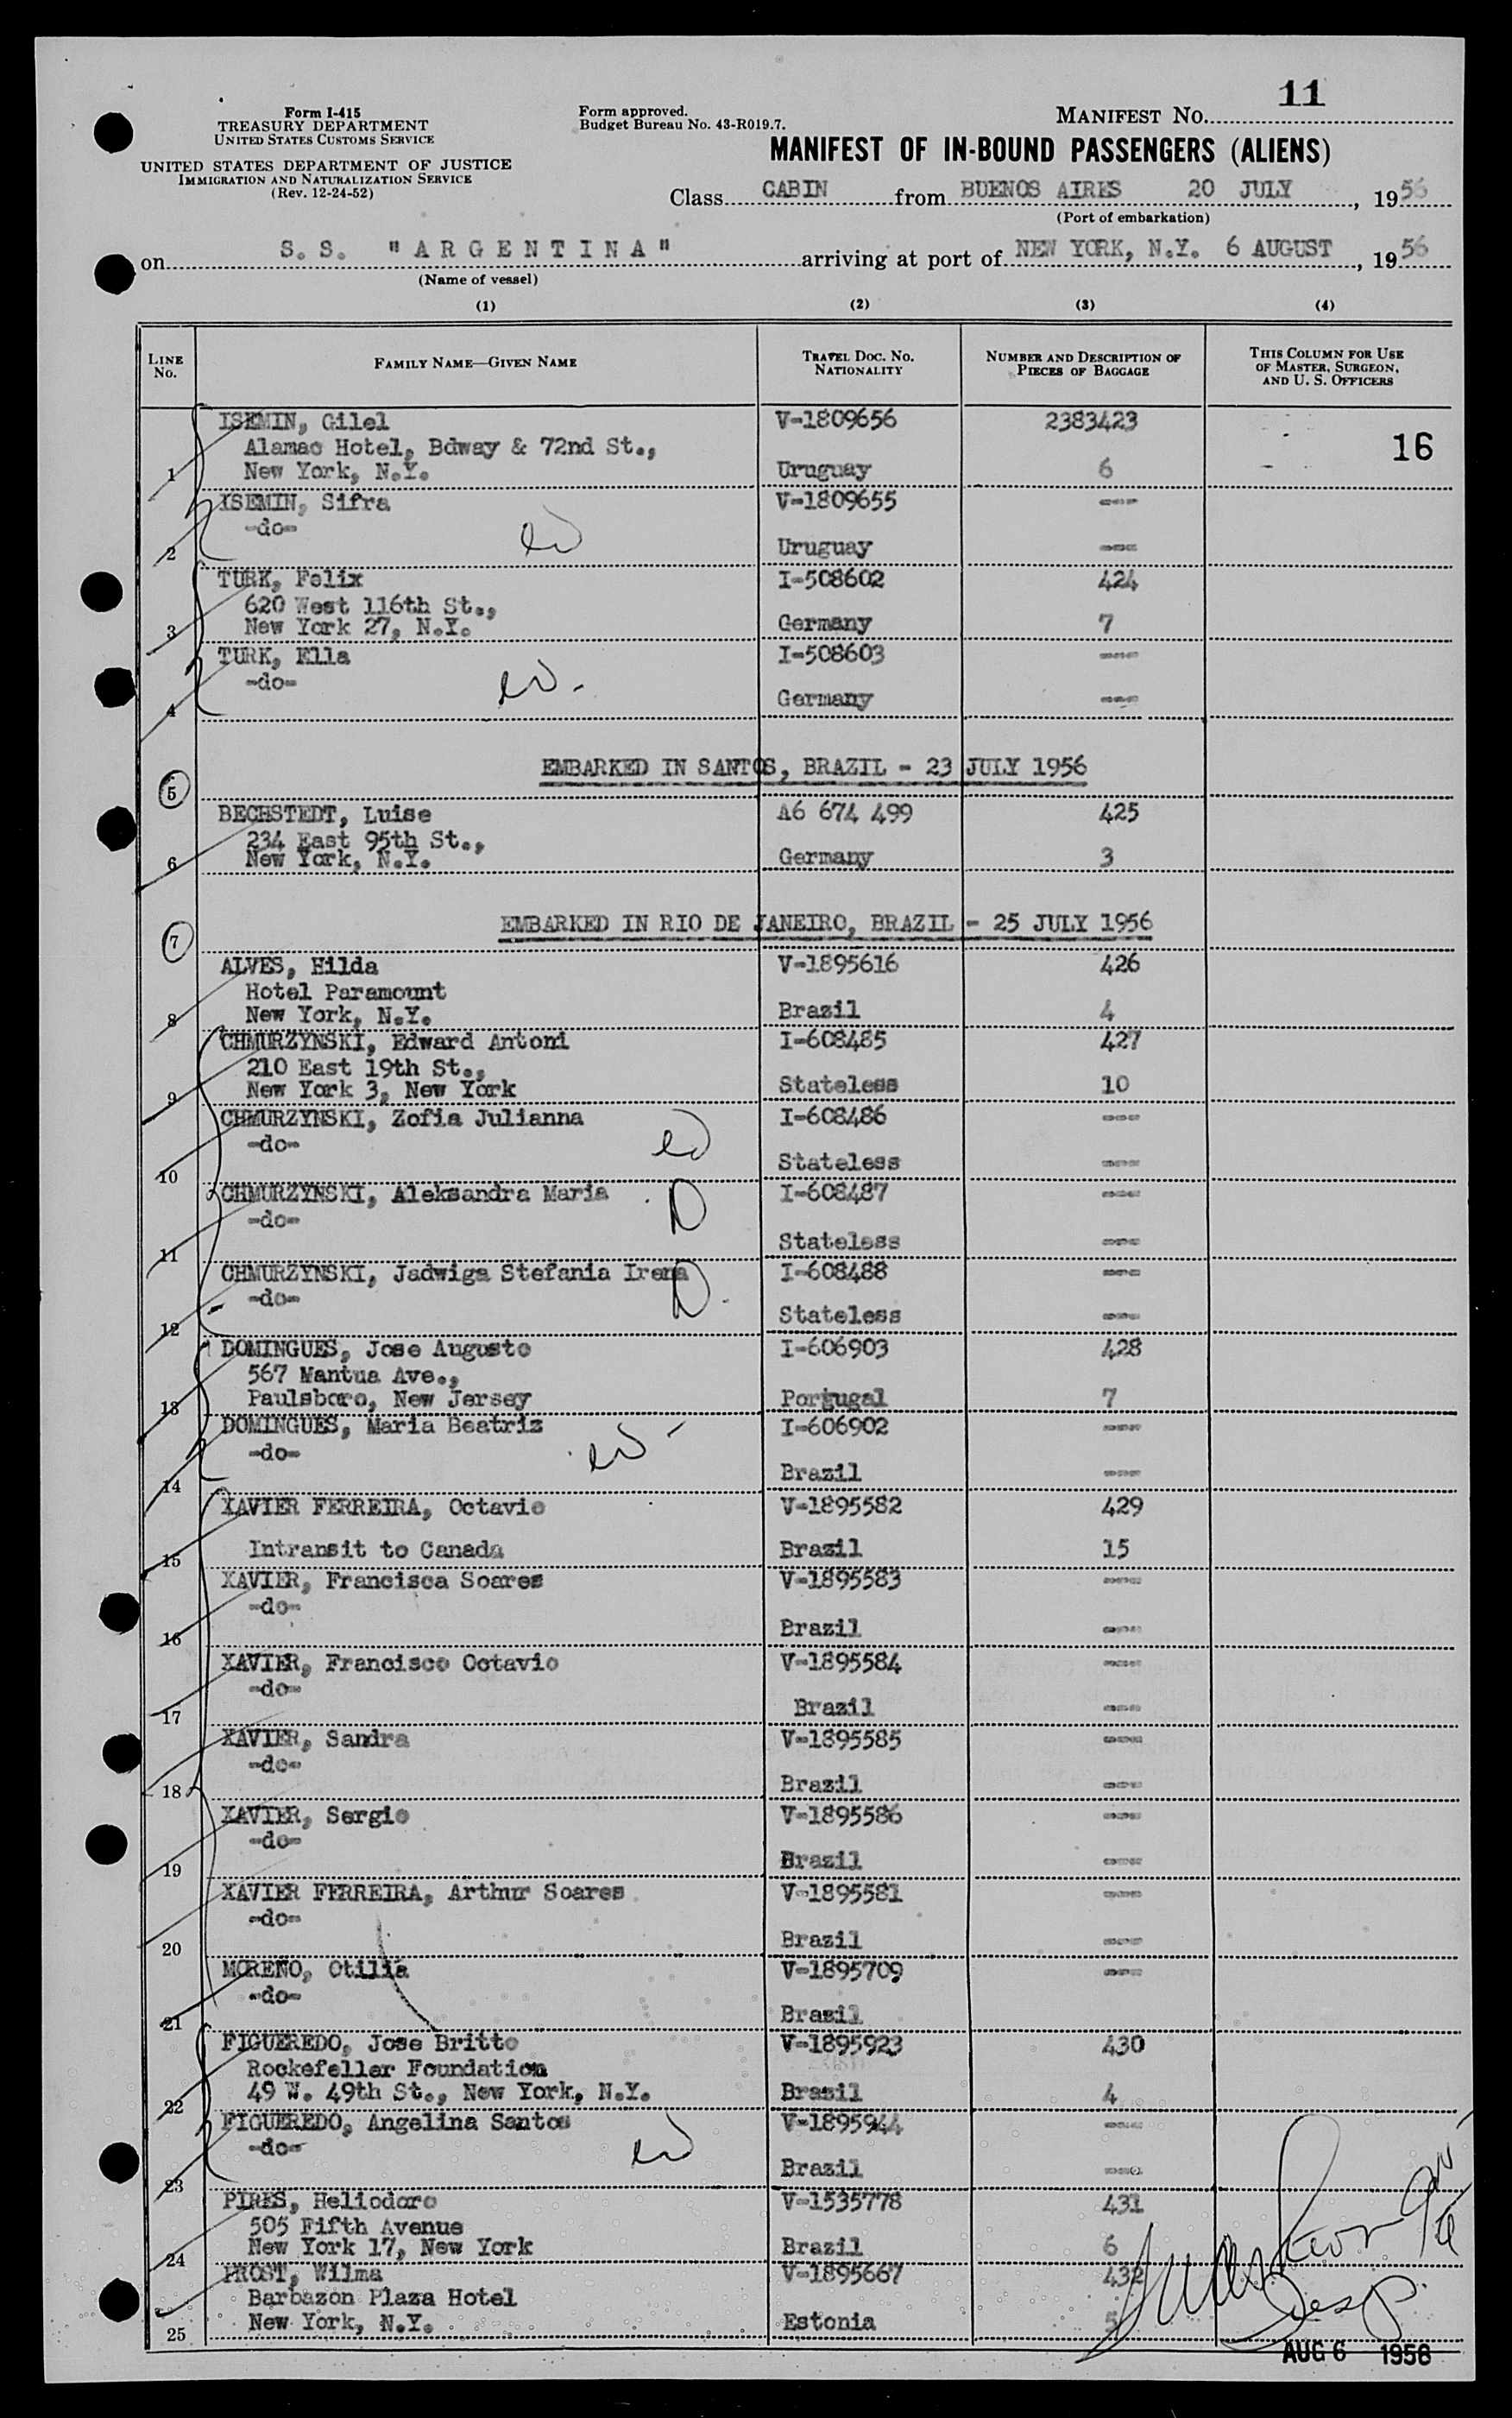 11
Form I-415
TREASURY DEPARTMENT
UNITED STATES CUSTOMS SERVICE
UNITED STATES DEPARTMENT OF JUSTICE
IMMIGRATION AND NATURALIZATION SERVICE
(Rev. 12-24-52)
Form approved.
Budget Bureau No. 43-R019.7.
MANIFEST No.
MANIFEST OF IN-BOUND PASSENGERS (ALIENS)
Class CABIN from BUENOS AIRES 20 JULY, 1956
(Port of embarkation)
on S. S. "ARGENTINA" arriving at port of NEW YORK, N.Y. 6 AUGUST, 1956
(Name of vessel)
(1) (2) (3) (4)
LINE No. FAMILY NAME—GIVEN NAME TRAVEL DOC. No. NATIONALITY NUMBER AND DESCRIPTION OF PIECES OF BAGGAGE THIS COLUMN FOR USE OF MASTER, SURGEON, AND U. S. OFFICERS
ISEMIN, Gilel V-1809656 2383423
Alamac Hotel, Bdway & 72nd St., 16
1 New York, N.Y. Uruguay 6
ISEMIN, Sifra V-1809655 ---
-do-
2 Uruguay ---
TURK, Felix I-508602 424
620 West 116th St.,
3 New York 27, N.Y. Germany 7
TURK, Ella I-508603 ---
-do-
4 Germany ---
EMBARKED IN SANTOS, BRAZIL - 23 JULY 1956
5
BECHSTEDT, Luise A6 674 499 425
234 East 95th St.,
6 New York, N.Y. Germany 3
EMBARKED IN RIO DE JANEIRO, BRAZIL - 25 JULY 1956
7
ALVES, Hilda V-1895616 426
Hotel Paramount
8 New York, N.Y. Brazil 4
CHMURZYNSKI, Edward Antoni I-608485 427
210 East 19th St.,
9 New York 3, New York Stateless 10
CHMURZYNSKI, Zofia Julianna I-608486 ---
-do-
10 Stateless ---
CHMURZYNSKI, Aleksandra Maria I-608487 ---
-do-
11 Stateless ---
CHMURZYNSKI, Jadwiga Stefania Irena I-608488 ---
-do-
12 Stateless ---
DOMINGUES, Jose Augusto I-606903 428
567 Mantua Ave.,
13 Paulsboro, New Jersey Porgugal 7
DOMINGUES, Maria Beatriz I-606902 ---
-do-
14 Brazil ---
XAVIER FERREIRA, Octavio V-1895582 429
15 Intransit to Canada Brazil 15
XAVIER, Francisca Soares V-1895583 ---
-do-
16 Brazil ---
XAVIER, Francisco Octavio V-1895584 ---
-do-
17 Brazil ---
XAVIER, Sandra V-1895585 ---
-do-
18 Brazil ---
XAVIER, Sergio V-1895586 ---
-do-
19 Brazil ---
XAVIER FERREIRA, Arthur Soares V-1895581 ---
-do-
20 Brazil ---
MORENO, Otilia V-1895709 ---
-do-
21 Brazil
FIGUEREDO, Jose Britto V-1895923 430
Rockefeller Foundation
22 49 W. 49th St., New York, N.Y. Brazil 4
FIGUEREDO, Angelina Santos V-1895944 ---
-do-
23 Brazil ---
PIRES, Heliodoro V-1535778 431
505 Fifth Avenue
24 New York 17, New York Brazil 6
PROST, Wilma V-1895667 432
Barbazon Plaza Hotel
25 New York, N.Y. Estonia 5
AUG 6 1956